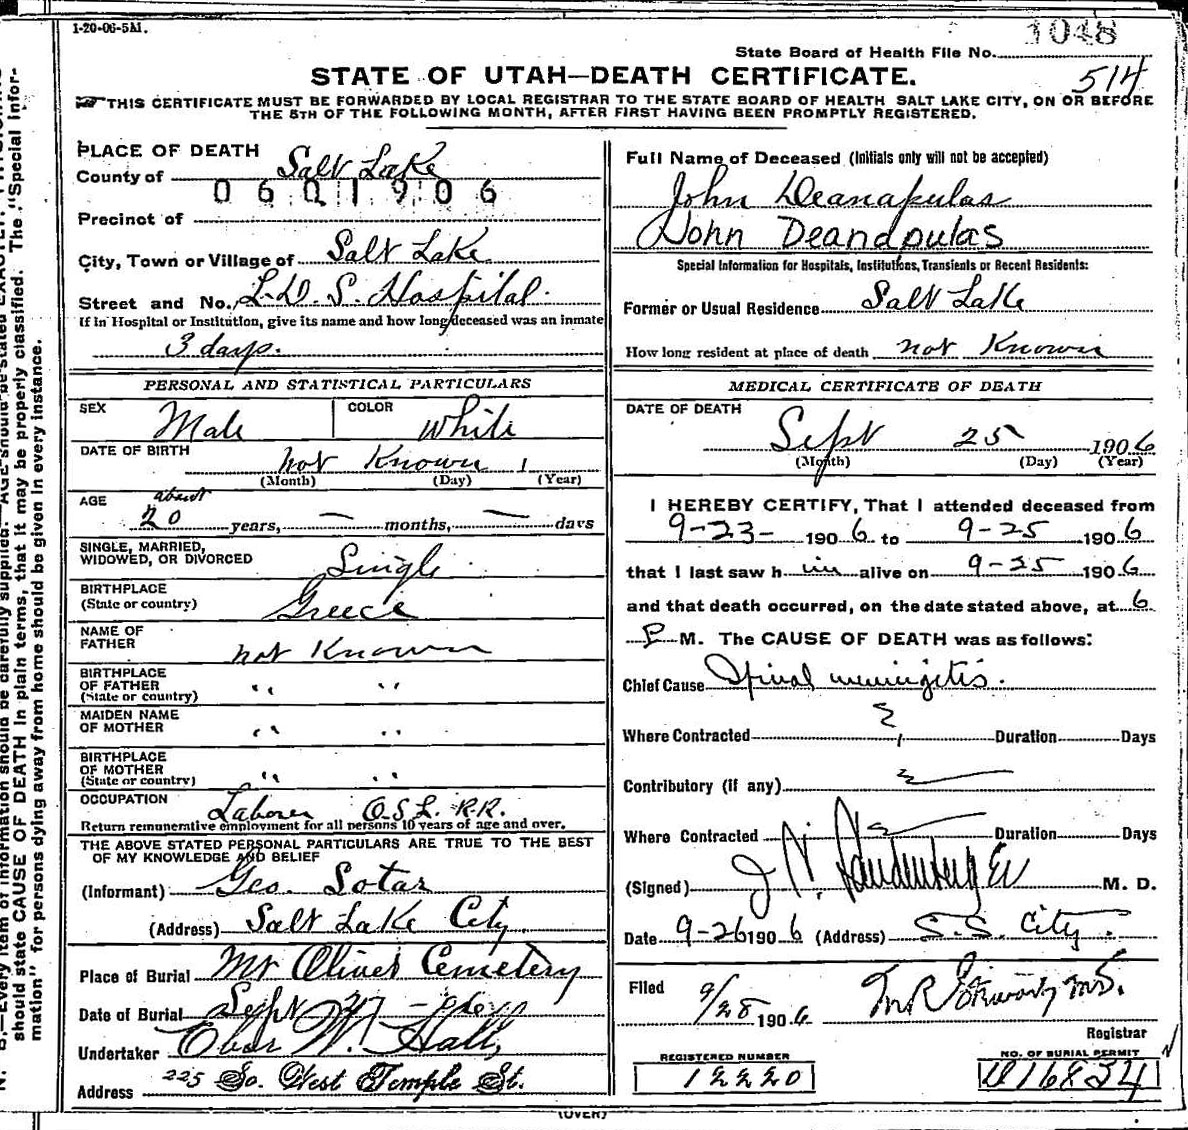 1-20-06-5M.
1048
State Board of Health File No.
514
STATE OF UTAH—DEATH CERTIFICATE.
THIS CERTIFICATE MUST BE FORWARDED BY LOCAL REGISTRAR TO THE STATE BOARD OF HEALTH SALT LAKE CITY, ON OR BEFORE
THE 5TH OF THE FOLLOWING MONTH, AFTER FIRST HAVING BEEN PROMPTLY REGISTERED.
PLACE OF DEATH
County of Salt Lake
0601906
Precinct of
City, Town or Village of Salt Lake
Street and No. L.D.S. Hospital.
If in Hospital or Institution, give its name and how long deceased was an inmate
3 days.
PERSONAL AND STATISTICAL PARTICULARS
SEX Male COLOR White
DATE OF BIRTH not Known 1
(Month) (Day) (Year)
AGE about
20 years, — months, — days
SINGLE, MARRIED,
WIDOWED, OR DIVORCED Single
BIRTHPLACE
(State or country) Greece
NAME OF
FATHER not Known
BIRTHPLACE
OF FATHER " "
(State or country)
MAIDEN NAME
OF MOTHER " "
BIRTHPLACE
OF MOTHER " "
(State or country)
OCCUPATION Laborer O.S.L. R.R.
Return remunerative employment for all persons 10 years of age and over.
THE ABOVE STATED PERSONAL PARTICULARS ARE TRUE TO THE BEST
OF MY KNOWLEDGE AND BELIEF
(Informant) Geo. Sotar
(Address) Salt Lake City
Place of Burial Mt Olivet Cemetery
Date of Burial Sept 27
Undertaker Eber W. Hall,
Address 225 So. West Temple St.
Full Name of Deceased (Initials only will not be accepted)
John Deanapulas
John Deanapulas
Special Information for Hospitals, Institutions, Transients or Recent Residents:
Former or Usual Residence Salt Lake
How long resident at place of death not Known
MEDICAL CERTIFICATE OF DEATH
DATE OF DEATH
Sept 25 1906
(Month) (Day) (Year)
I HEREBY CERTIFY, That I attended deceased from
9-23- 1906 to 9-25 1906
that I last saw him alive on 9-25 1906
and that death occurred, on the date stated above, at 6
P M. The CAUSE OF DEATH was as follows:
Chief Cause Spinal meningitis.
Where Contracted ? Duration Days
Contributory (if any)
Where Contracted Duration Days
(Signed) J. N. M. D.
Date 9-26 1906 (Address) S.L. City.
Filed 9/28 1906 M.D.
Registrar
REGISTERED NUMBER
12220
NO. OF BURIAL PERMIT
D16834
(OVER)
should state CAUSE OF DEATH in plain terms, that it may be properly classified. The "Special Infor-
mation" for persons dying away from home should be given in every instance.